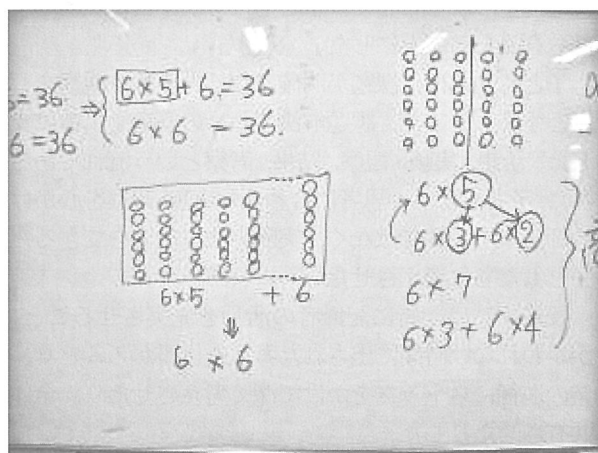 =36 ⇒ { 6×5+6=36
6=36 6×6 =36.
6×5 +6
⇓
6×6
6×5
6×3+6×2
6×7
6×3+6×4